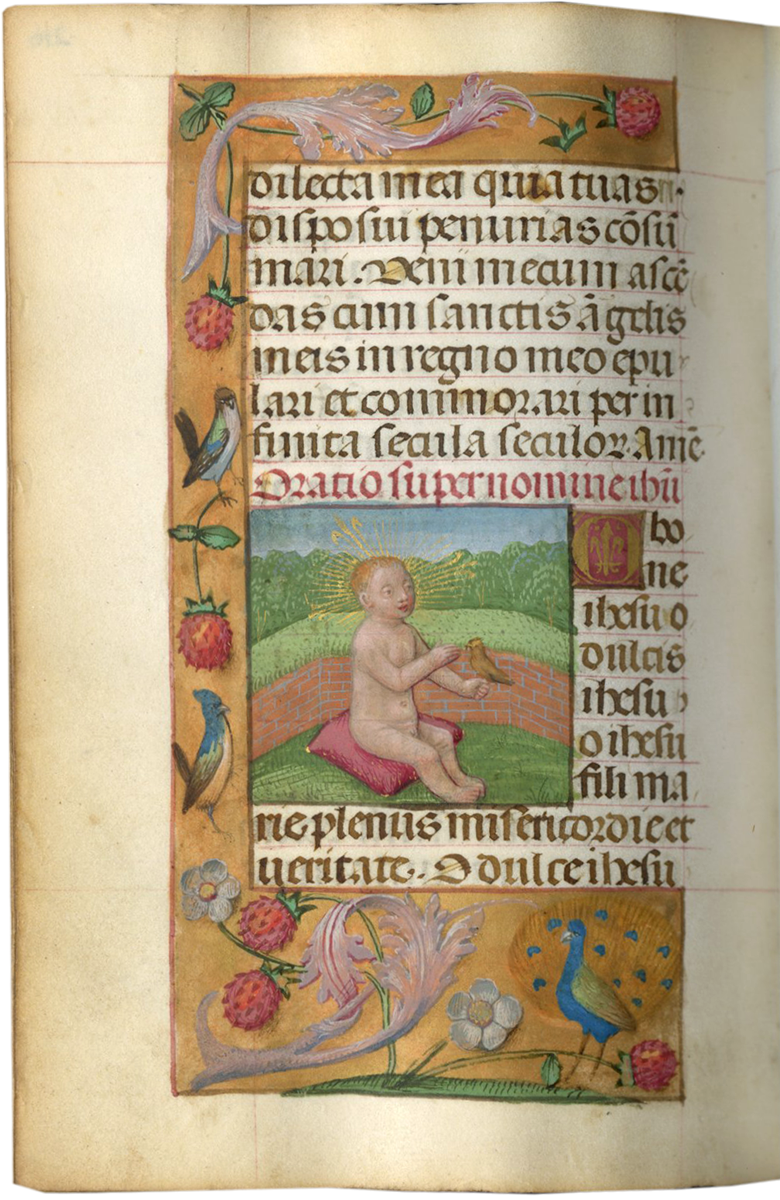 dilecta mea quia tuas
disposui penurias cōsū
mari. Veni mecum ascē
das cum sanctis āgelis
meis in regno meo epu
lari et commorari per in
finita secula seculoꝝ. Amē
Oratio super nomine ihū
O bo
ne
ihesu o
dulcis
ihesu
o ihesu
fili ma
rie plenus misericordie et
ueritate. O dulce ihesu